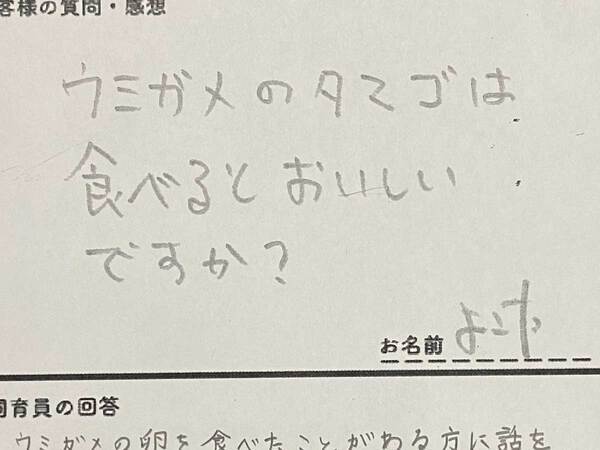 客様の質問・感想
ウミガメのタマゴは
食べるとおいしい
ですか?
お名前
飼育員の回答
ウミガメの卵を食べたことがある方に話を